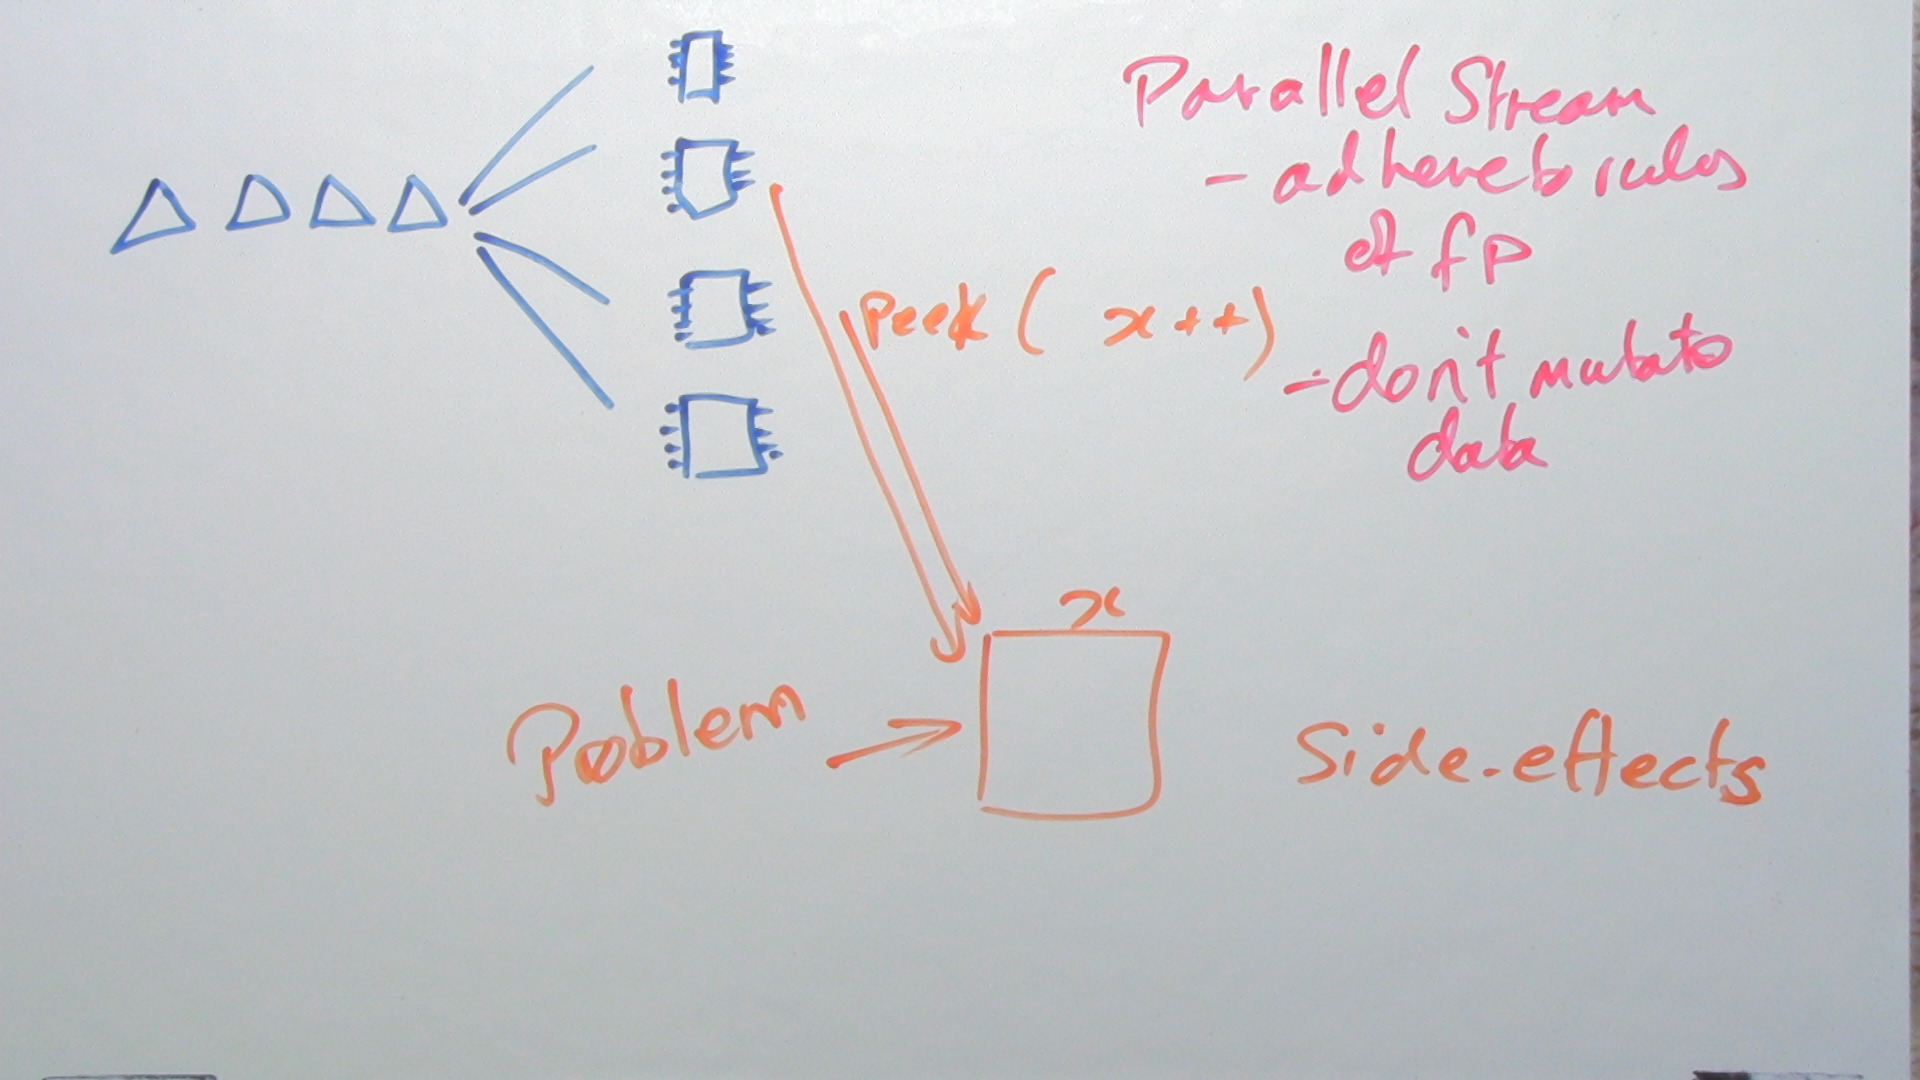 Parallel Stream
- adhere to rules
of fp
- don't mutate
data
Peek ( x++)
x
Problem
Side-effects